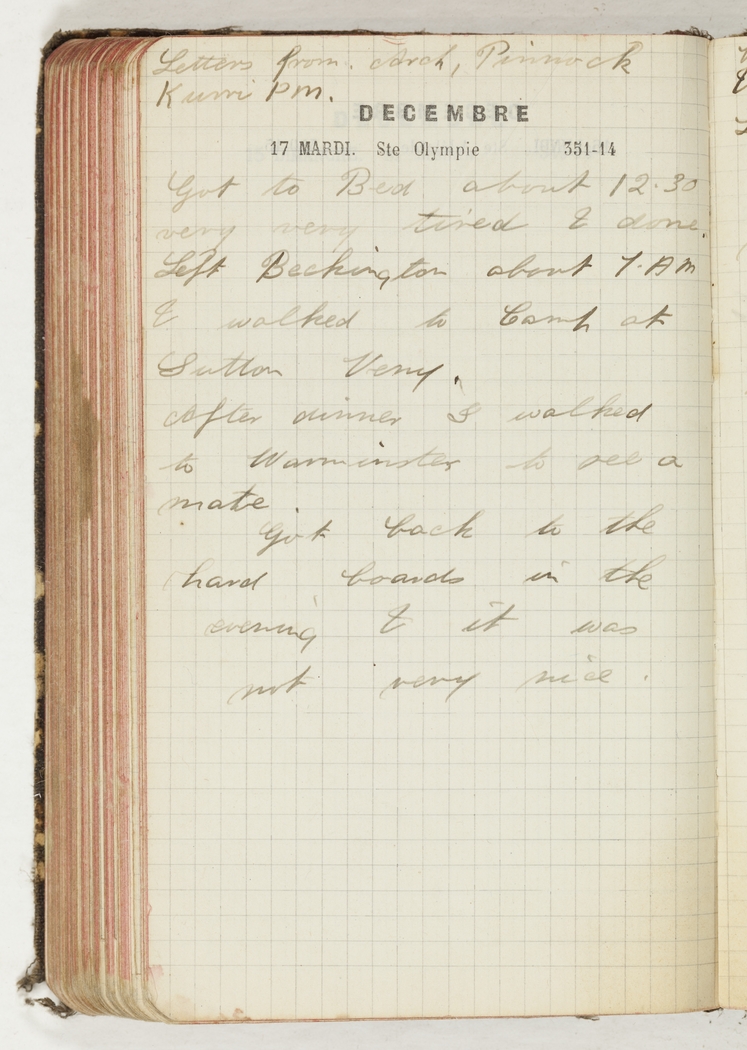 Letters from. Arch, Pinnock
Kurri P.M.
DECEMBRE
17 MARDI. Ste Olympie 351-14
Got to Bed about 12.30
very very tired & done.
Left Beckington about 7. AM
& walked to Camp at
Sutton Veny.
After dinner I walked
to Warminster to see a
mate
Got back to the
hard boards in the
evening & it was
not very nice.